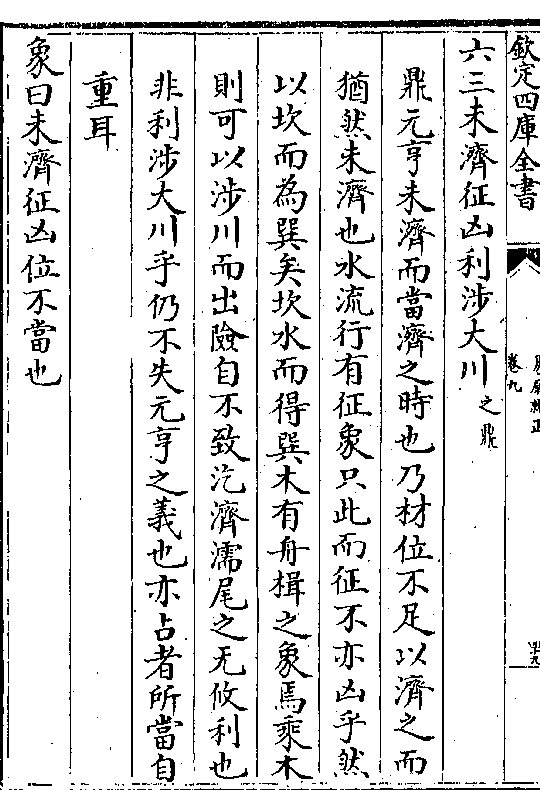 欽定四庫全書
卷九
六三未濟征凶利涉大川之鼎
鼎元亨未濟而當濟之時也乃材位不足以濟之而
猶然未濟也水流行有征象只此而征不亦凶乎然
以坎而為巽矣坎水而得巽木有舟楫之象焉乘木
則可以涉川而出險自不致汔濟濡尾之无攸利也
非利涉大川乎仍不失元亨之義也亦占者所當自
重耳
象曰未濟征凶位不當也